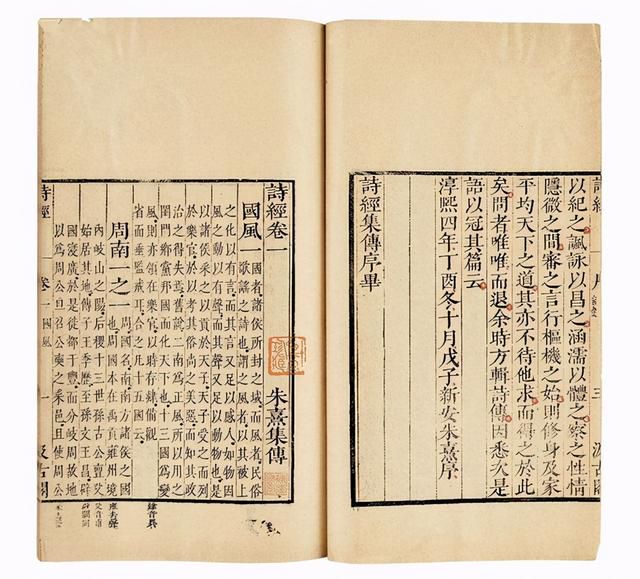 詩經 三 汲古閣
以紀之諷詠以昌之涵濡以體之察之性情
隱微之間審之言行樞機之始則修身及家
平均天下之道其亦不待他求而得之於此
矣問者唯唯而退余時方輯詩傳因悉次是
語以冠其篇云
淳熙四年丁酉冬十月戊子新安朱熹序
詩經集傳序畢
詩經卷一 朱熹集傳
國風一 國者諸侯所封之域而風者民俗
歌謠之詩也謂之風者以其被上
之化以有言而其言又足以感人如物因
風之動以有聲而其聲又足以動物也是
以諸侯采之以貢於天子天子受之而列
於樂官於以考其俗尚之美惡而知其政
治之得失焉舊說二南為正風所以用之
閨門鄉黨邦國而化天下也十三國為變
風則亦領在樂官以時存肄備觀
省而垂監戒耳合之凡十五國云
周南一之一 周國名南南方諸侯之國
也周國本在禹貢雍州境
內岐山之陽后稷十三世孫古公亶父
始居其地傳子王季歷至孫文王昌辟
國寖廣於是徙都于豐而分岐周故地
以為周公旦召公奭之采邑且使周公
詩經 卷一 國風 一 汲古閣
肄音異
雍去聲
父音甫